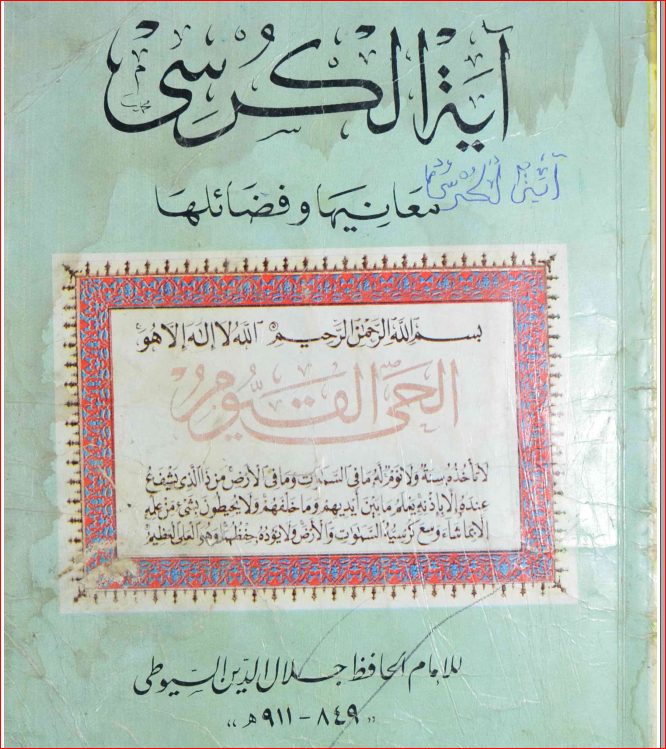 آية الكرسى
آية الكرسى
معانيها وفضائلها
بسم الله الرحمن الرحيم الله لا إله إلا هو
الحى القيوم
لا تأخذه سنة ولا نوم له ما فى السموات وما فى الأرض من ذا الذى يشفع
عنده إلا بإذنه يعلم ما بين أيديهم وما خلفهم ولا يحيطون بشىء من علمه
إلا بما شاء وسع كرسيه السموات والأرض ولا يؤده حفظهما وهو العلى العظيم
للإمام الحافظ جلال الدين السيوطى
"٨٤٩ - ٩١١ هـ"